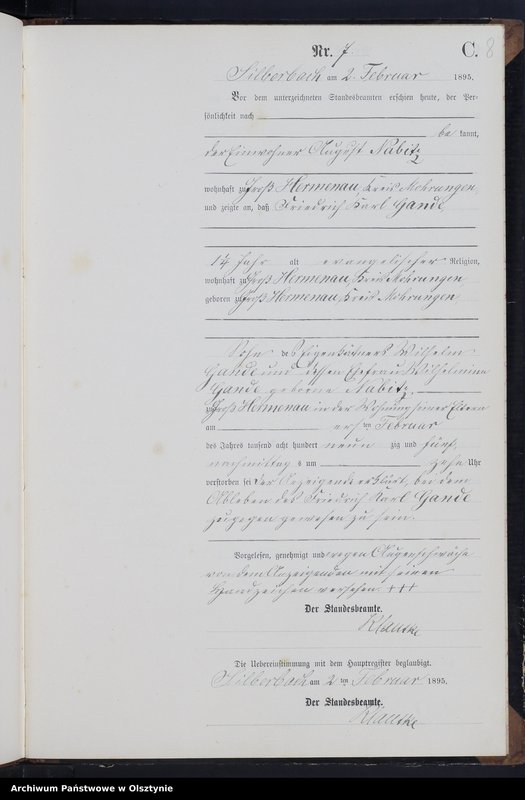 Nr. 7.
C. 8
Silberbach am 2. Februar 1895.
Vor dem unterzeichneten Standesbeamten erschien heute, der Per-
sönlichkeit nach
be kannt,
der Einwohner August Nabitz
wohnhaft zu Groß Hermenau, Kreis Mohrungen,
und zeigte an, daß Friedrich Karl Gande
14 Jahr alt evangelischer Religion,
wohnhaft zu Groß Hermenau, Kreis Mohrungen
geboren zu Groß Hermenau, Kreis Mohrungen
Sohn des Eigenkäthners Wilhelm
Gande und dessen Ehefrau Wilhelmine
Gande geborene Nabitz.
zu Groß Hermenau in der Wohnung seiner Eltern
am ersten Februar
des Jahres tausend acht hundert neun zig und fünf
nachmittag s um zehn Uhr
verstorben sei Der Anzeigende erklärt, bei dem
Ableben des Friedrich Karl Gande
zugegen gewesen zu sein.
Vorgelesen, genehmigt und wegen Augenschwäche
von dem Anzeigenden mit seinen
Handzeichen versehen. +++
Der Standesbeamte.
Die Uebereinstimmung mit dem Hauptregister beglaubigt.
Silberbach am 2 ten Februar 1895.
Der Standesbeamte.
Archiwum Państwowe w Olsztynie